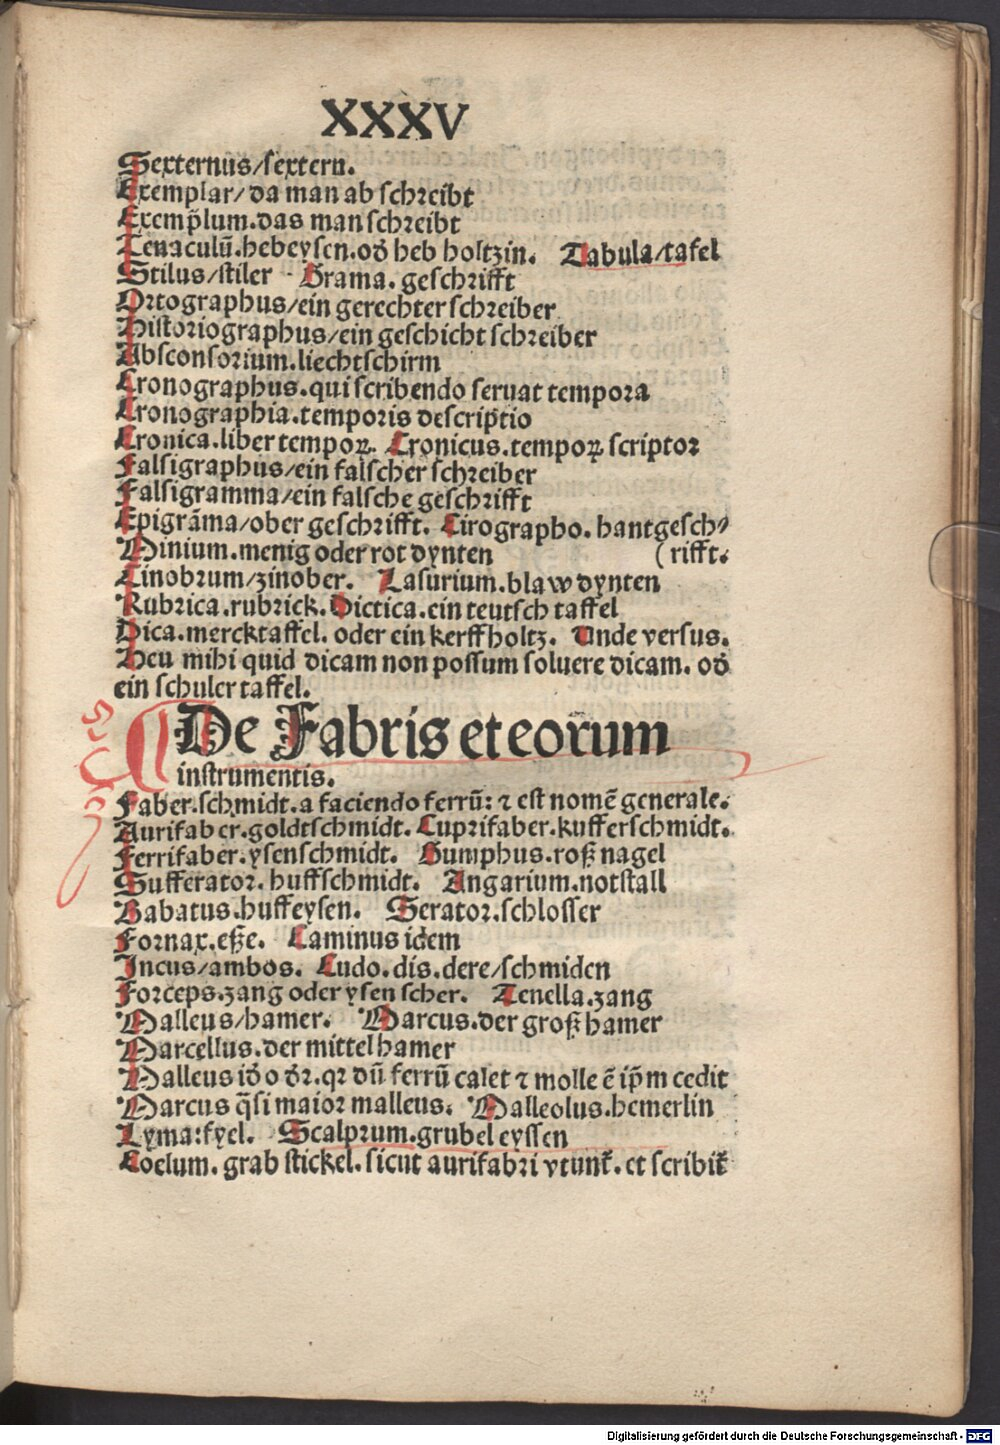 XXXV
Sexternus/sextern.
Exemplar/da man ab schreibt
Exemp̃lum.das man schreibt
Tenaculū.hebeysen.od̕ heb holtzin. Tabula/tafel
Stilus/stiler Grama.geschrifft
Ortographus/ein gerechter schreiber
Historiographus/ein geschicht schreiber
Absconsorium.liechtschirm
Cronographus.qui scribendo seruat tempora
Cronographia.temporis descriptio
Cronica.liber tempoꝝ. Cronicus.tempoꝝ scriptor
Falsigraphus/ein falscher schreiber
Falsigramma/ein falsche geschrifft
Epigrãma/ober geschrifft. Cirographo.hantgesch⸗
Minium.menig oder rot dynten (rifft.
Cinobrum/zinober. Lasurium.blaw dynten
Rubrica.rubrick. Dictica.ein teutsch taffel
Dica.mercktaffel.oder ein kerffholtz. Unde versus.
Heu mihi quid dicam non possum soluere dicam. od̕
ein schuler taffel.
De Fabris et eorum
instrumentis.
Faber.schmidt.a faciendo ferrū: ⁊ est nomē generale.
Aurifaber.goldtschmidt. Cuprifaber.kufferschmidt.
Ferrifaber.ysenschmidt. Gumphus.roß nagel
Sufferator.huffschmidt. Angarium.notstall
Babatus.huffeysen. Serator.schlosser
Fornax.eße. Caminus idem
Incus/ambos. Cudo.dis.dere/schmiden
Forceps.zang oder ysen scher. Tenella.zang
Malleus/hamer. Marcus.der groß hamer
Marcellus.der mittel hamer
Malleus id̕o d̕r.qꝛ dū ferrū calet ⁊ molle ē ip̄m cedit
Marcus q̃si maior malleus. Malleolus.hemerlin
Lyma:fyel. Scalprum.grubel eyssen
Coelum.grab stickel.sicut aurifabri vtunt᷑.et scribit᷑
Digitalisierung gefördert durch die Deutsche Forschungsgemeinschaft - DFG